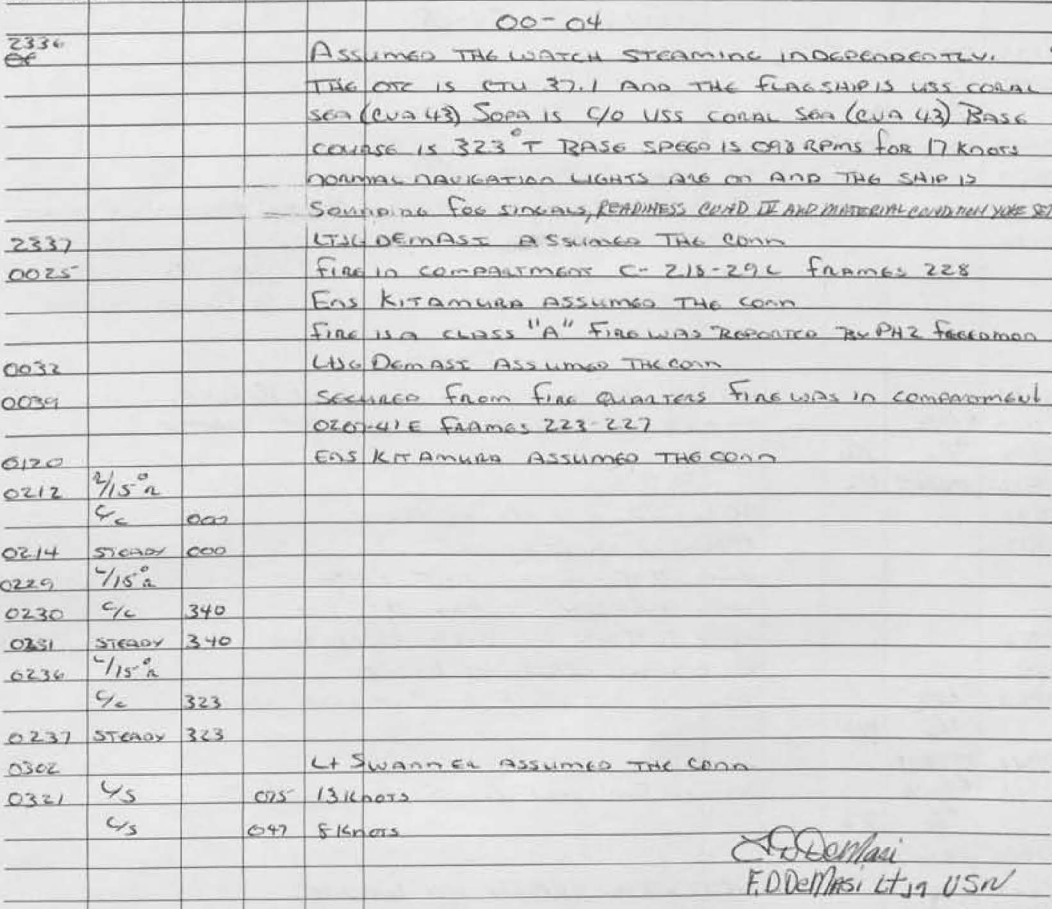 00-04
2336 ASSUMED THE WATCH STEAMING INDEPENDENTLY.
THE OTC IS CTU 37.1 AND THE FLAGSHIP IS USS CORAL
SEA (CVA 43) SOPA IS C/O USS CORAL SEA (CVA 43) BASE
COURSE IS 323°T BASE SPEED IS 098 RPMS FOR 17 KNOTS
NORMAL NAVIGATION LIGHTS ARE ON AND THE SHIP IS
SOUNDING FOG SINGALS, READINESS COND IV AND MATERIAL CONDITION YOKE SET
2337 LTJG DEMASI ASSUMED THE CONN
0025 FIRE IN COMPARTMENT C-218-29L FRAMES 228
ENS KITAMURA ASSUMED THE CONN
FIRE IS A CLASS "A" FIRE WAS REPORTED BY PH2 FREEDMAN
0032 LTJG DEMASI ASSUMED THE CONN
0039 SECURED FROM FIRE QUARTERS FIRE WAS IN COMPARTMENT
0207-41E FRAMES 223-227
0120 ENS KITAMURA ASSUMED THE CONN
0212 R/15°R
C/C 000
0214 STEADY 000
0229 L/15°R
0230 C/C 340
0231 STEADY 340
0236 L/15°R
C/C 323
0237 STEADY 323
0302 Lt SWANNER ASSUMED THE CONN
0321 C/S 075 13 KNOTS
C/S 047 8 KNOTS
F.D. DeMasi
F.D DeMasi Ltjg USN